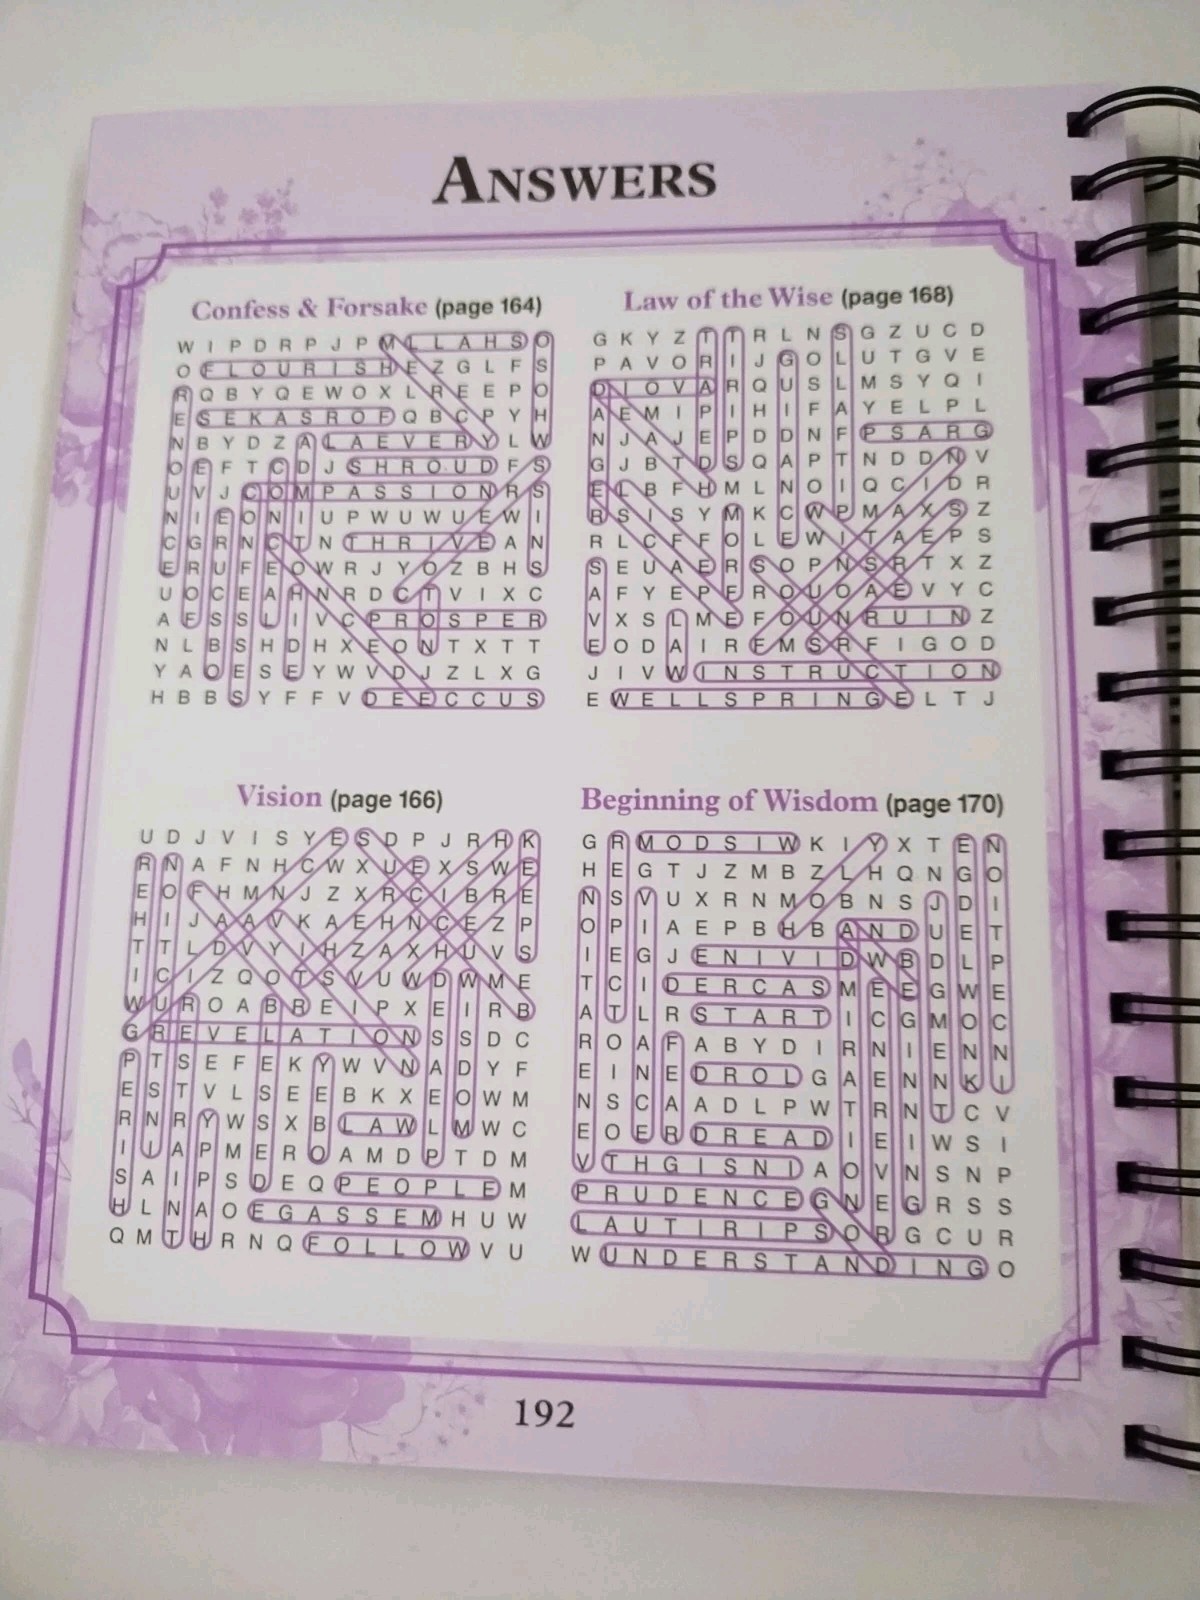 ANSWERS
Confess & Forsake (page 164)
W I P D R P J P M L L A H S O
O F L O U R I S H E Z G L F S
R Q B Y Q E W O X L R E E P O
E S E K A S R O F Q B C P Y H
N B Y D Z A L A E V E R Y L W
O E F T C D J S H R O U D F S
U V J C O M P A S S I O N R S
N I E O N I U P W U W U E W I
C G R N C T N T H R I V E A N
E R U F E O W R J Y O Z B H S
U O C E A H N R D C T V I X C
A F S S L I V C P R O S P E R
N L B S H D H X E O N T X T T
Y A O E S E Y W V D J Z L X G
H B B S Y F F V D E E C C U S
Law of the Wise (page 168)
G K Y Z T T R L N S G Z U C D
P A V O R I J G O L U T G V E
D I O V A R Q U S L M S Y Q I
A E M I P I H I F A Y E L P L
N J A J E P D D N F P S A R G
G J B T D S Q A P T N D D N V
E L B F H M L N O I Q C I D R
R S I S Y M K C W P M A X S Z
R L C F F O L E W I T A E P S
S E U A E R S O P N S R T X Z
A F Y E P F R O U O A E V Y C
V X S L M E F O U N R U I N Z
E O D A I R F M S R F I G O D
J I V W I N S T R U C T I O N
E W E L L S P R I N G E L T J
Vision (page 166)
U D J V I S Y E S D P J R H K
R N A F N H C W X U E X S W E
E O F H M N J Z X R C I B R E
H I J A A V K A E H N C E Z P
T T L D V Y I H Z A X H U V S
I C I Z Q O T S V U W D W M E
W U R O A B R E I P X E I R B
G R E V E L A T I O N S S D C
P T S E F E K Y W V N A D Y F
E S T V L S E E B K X E O W M
R N R Y W S X B L A W L M W C
I I A P M E R O A M D P T D M
S A I P S D E Q P E O P L E M
H L N A O E G A S S E M H U W
Q M T H R N Q F O L L O W V U
Beginning of Wisdom (page 170)
G R M O D S I W K I Y X T E N
H E G T J Z M B Z L H Q N G O
N S V U X R N M O B N S J D I
O P I A E P B H B A N D U E T
I E G J E N I V I D W B D L P
T C I D E R C A S M E E G W E
A T L R S T A R T I C G M O C
R O A F A B Y D I R N I E N N
E I N E D R O L G A E N N K I
N S C A A D L P W T R N T C V
E O E R D R E A D I E I W S I
V T H G I S N I A O V N S N P
P R U D E N C E G N E G R S S
L A U T I R I P S O R G C U R
W U N D E R S T A N D I N G O
192